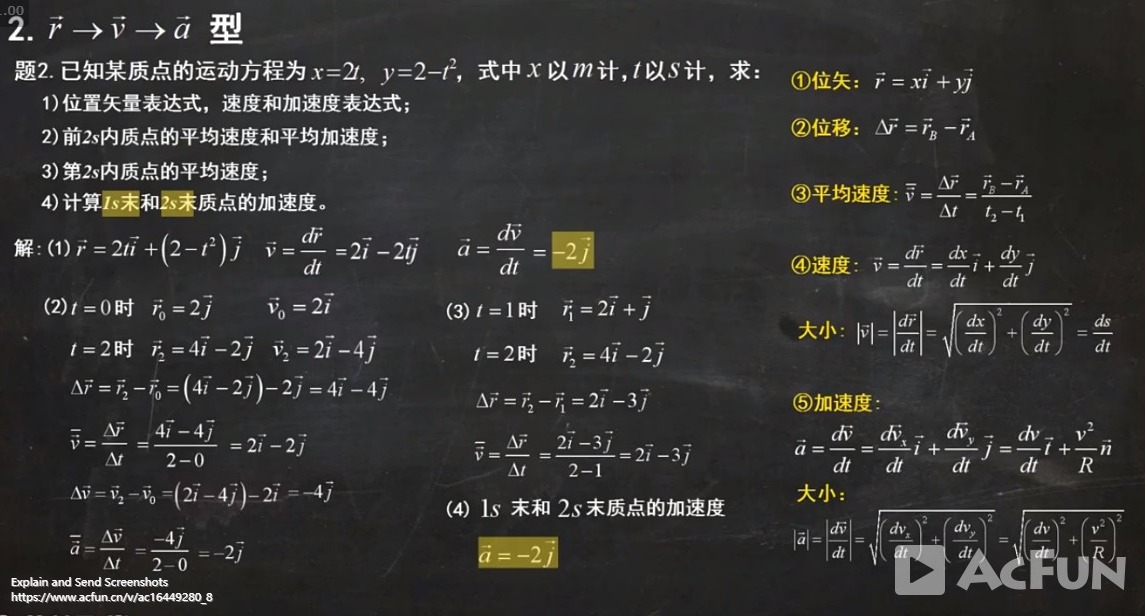 1.00
2. r⃗ → v⃗ → a⃗ 型
题2. 已知某质点的运动方程为 x=2t, y=2−t², 式中 x 以 m 计, t 以 s 计, 求:
1) 位置矢量表达式, 速度和加速度表达式;
2) 前2s内质点的平均速度和平均加速度;
3) 第2s内质点的平均速度;
4) 计算1s末和2s末质点的加速度。
解: (1) r⃗ = 2ti⃗ + (2−t²) j⃗ v⃗ = dr⃗/dt = 2i⃗ − 2tj⃗ a⃗ = dv⃗/dt = −2j⃗
(2) t=0时 r⃗₀ = 2j⃗ v⃗₀ = 2i⃗
t=2时 r⃗₂ = 4i⃗ − 2j⃗ v⃗₂ = 2i⃗ − 4j⃗
Δr⃗ = r⃗₂ − r⃗₀ = (4i⃗ − 2j⃗) − 2j⃗ = 4i⃗ − 4j⃗
v̄⃗ = Δr⃗/Δt = (4i⃗ − 4j⃗)/(2−0) = 2i⃗ − 2j⃗
Δv⃗ = v⃗₂ − v⃗₀ = (2i⃗ − 4j⃗) − 2i⃗ = −4j⃗
a̅⃗ = Δv⃗/Δt = −4j⃗/(2−0) = −2j⃗
(3) t=1时 r⃗₁ = 2i⃗ + j⃗
t=2时 r⃗₂ = 4i⃗ − 2j⃗
Δr⃗ = r⃗₂ − r⃗₁ = 2i⃗ − 3j⃗
v̄⃗ = Δr⃗/Δt = (2i⃗ − 3j⃗)/(2−1) = 2i⃗ − 3j⃗
(4) 1s 末和 2s 末质点的加速度
a⃗ = −2j⃗
①位矢: r⃗ = xi⃗ + yj⃗
②位移: Δr⃗ = r⃗_B − r⃗_A
③平均速度: v̄⃗ = Δr⃗/Δt = (r⃗_B − r⃗_A)/(t₂ − t₁)
④速度: v⃗ = dr⃗/dt = dx/dt i⃗ + dy/dt j⃗
大小: |v⃗| = |dr⃗/dt| = √((dx/dt)² + (dy/dt)²) = ds/dt
⑤加速度:
a⃗ = dv⃗/dt = dv⃗ₓ/dt i⃗ + dv⃗_y/dt j⃗ = dv/dt t⃗ + v²/R n⃗
大小:
|a⃗| = |dv⃗/dt| = √((dvₓ/dt)² + (dv_y/dt)²) = √((dv/dt)² + (v²/R)²)
Explain and Send Screenshots
https://www.acfun.cn/v/ac16449280_8
ACFUN